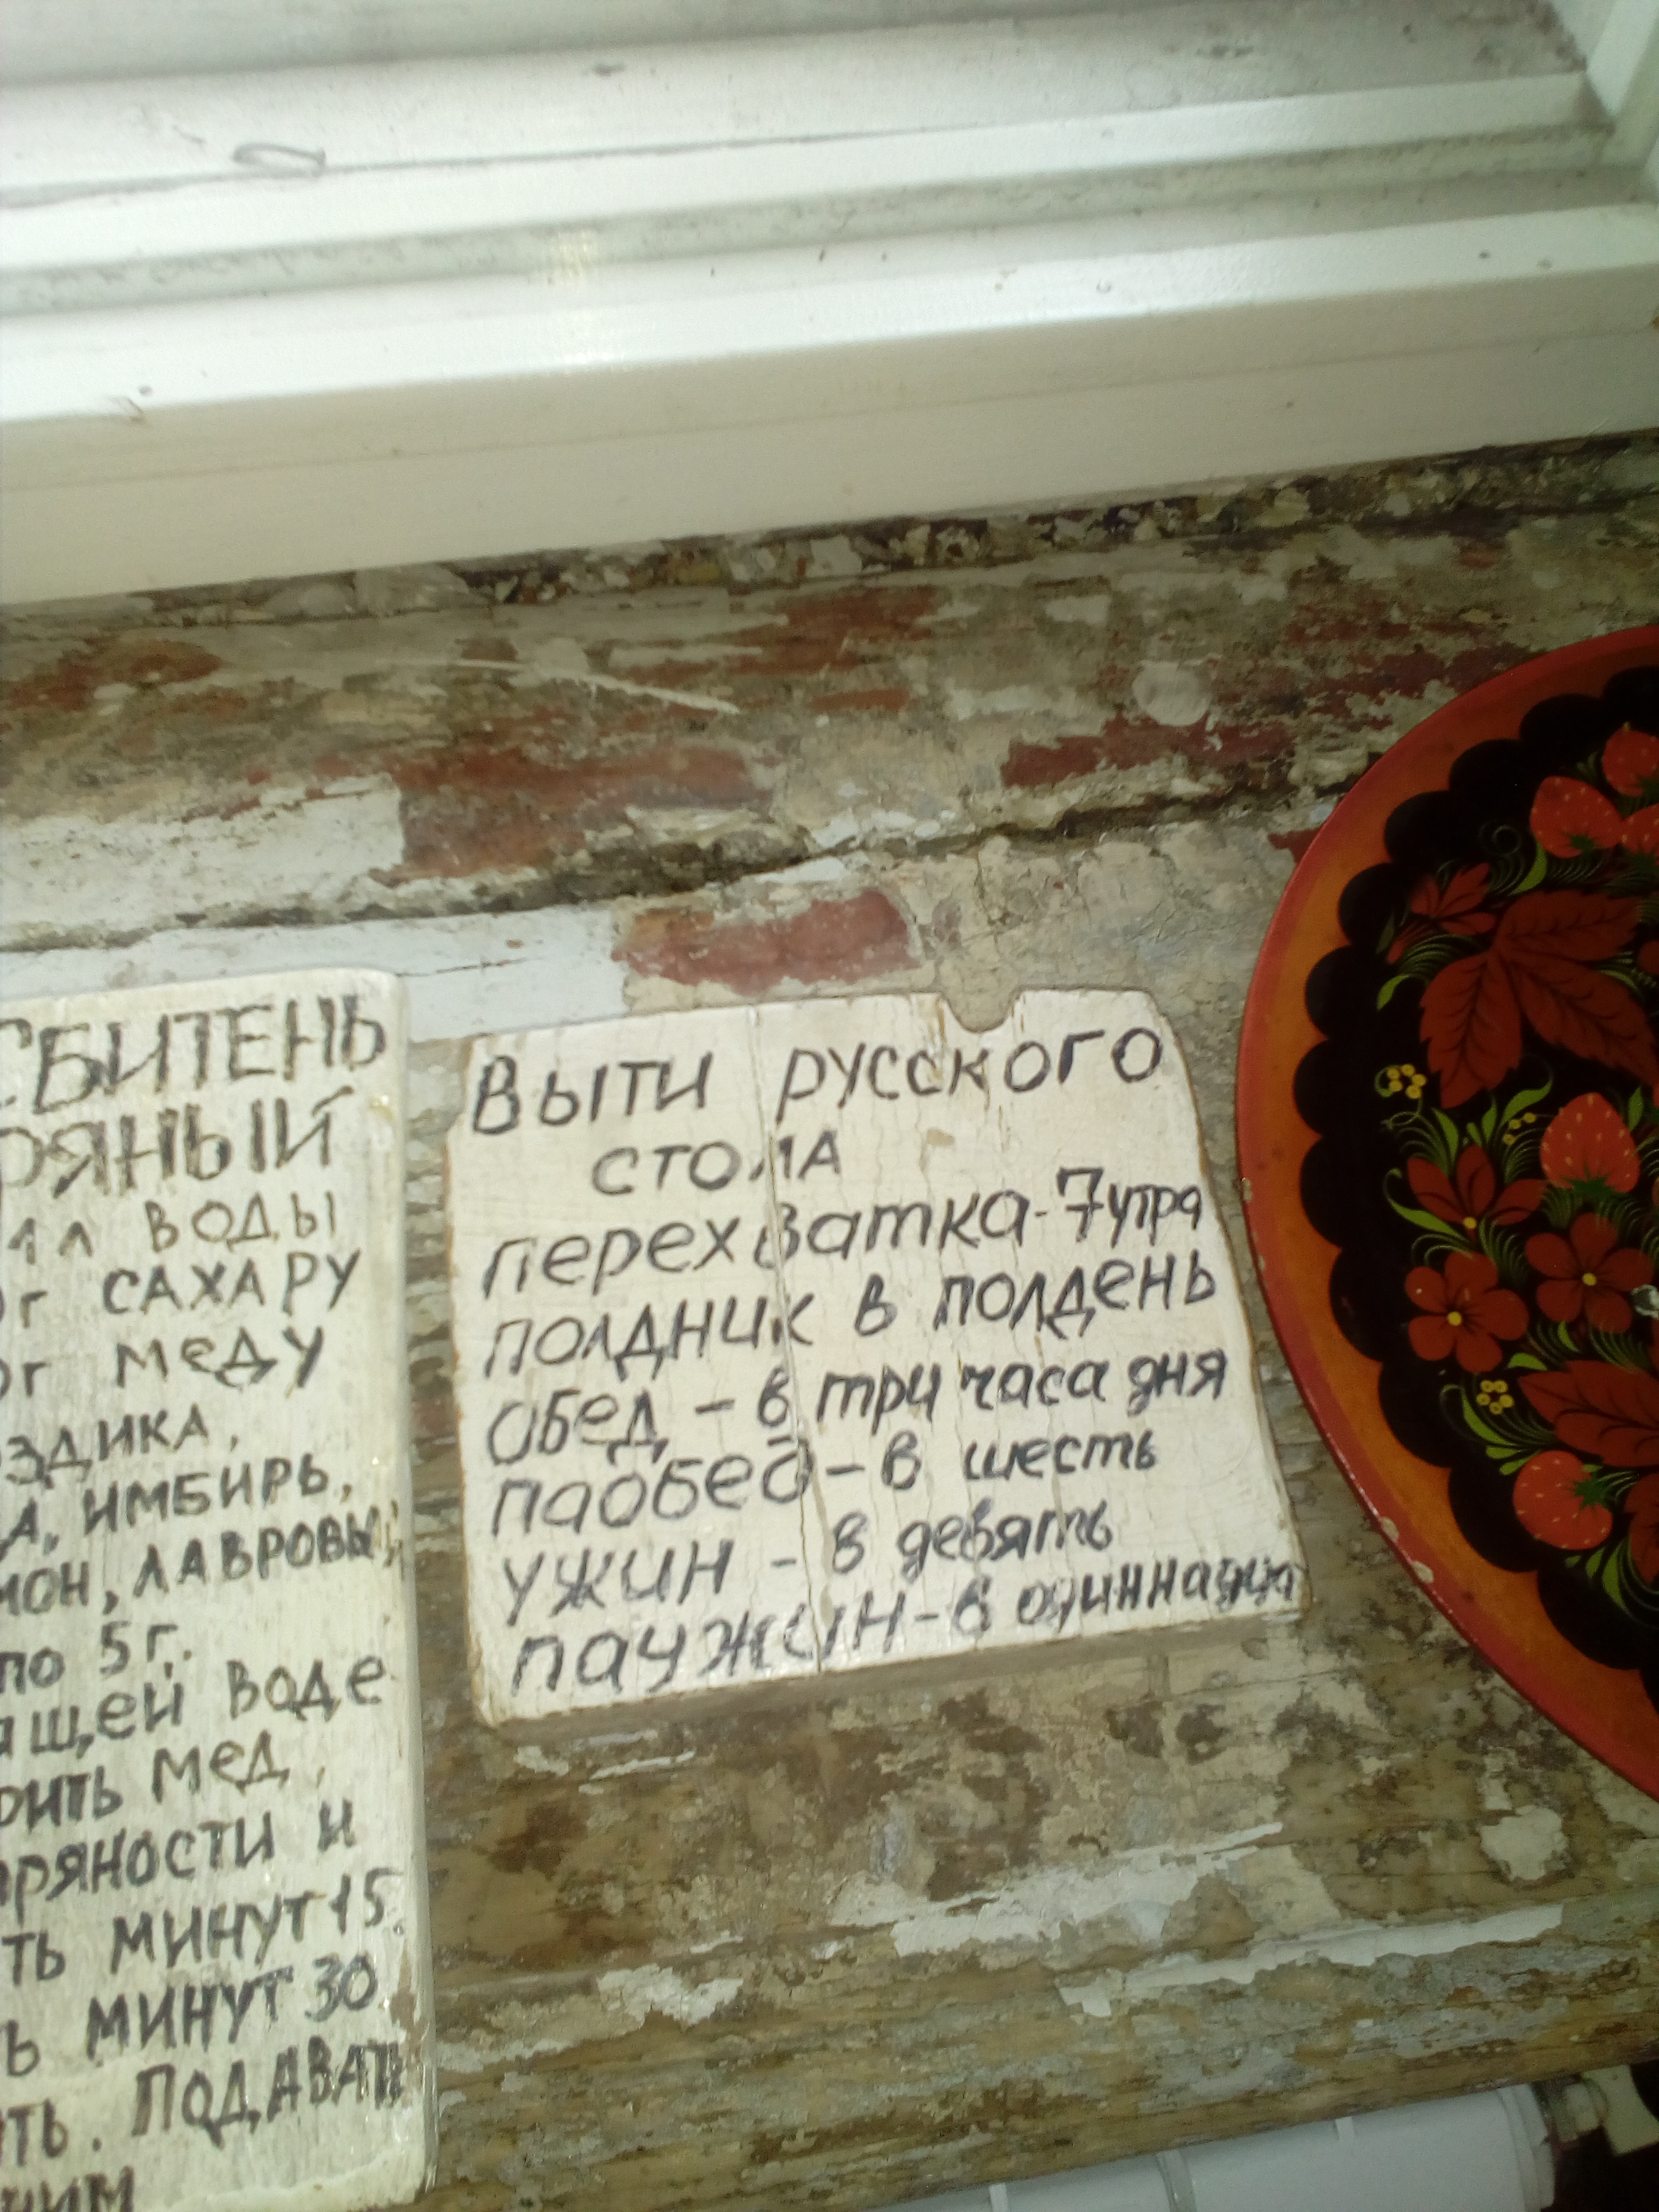 СБИТЕНЬ
1 л ВОДЫ
САХАРУ
МЕДУ
ИМБИРЬ,
ЛАВРОВЫЙ
ПО 5 г.
ВОДЕ
МЕД,
ПРЯНОСТИ И
МИНУТ 15.
МИНУТ 30
ПОДАВАТЬ
Выти русского
стола
перехватка - 7 утра
полдник в полдень
обед - в три часа дня
паобед - в шесть
ужин - в девять
паужин - в одиннадцать